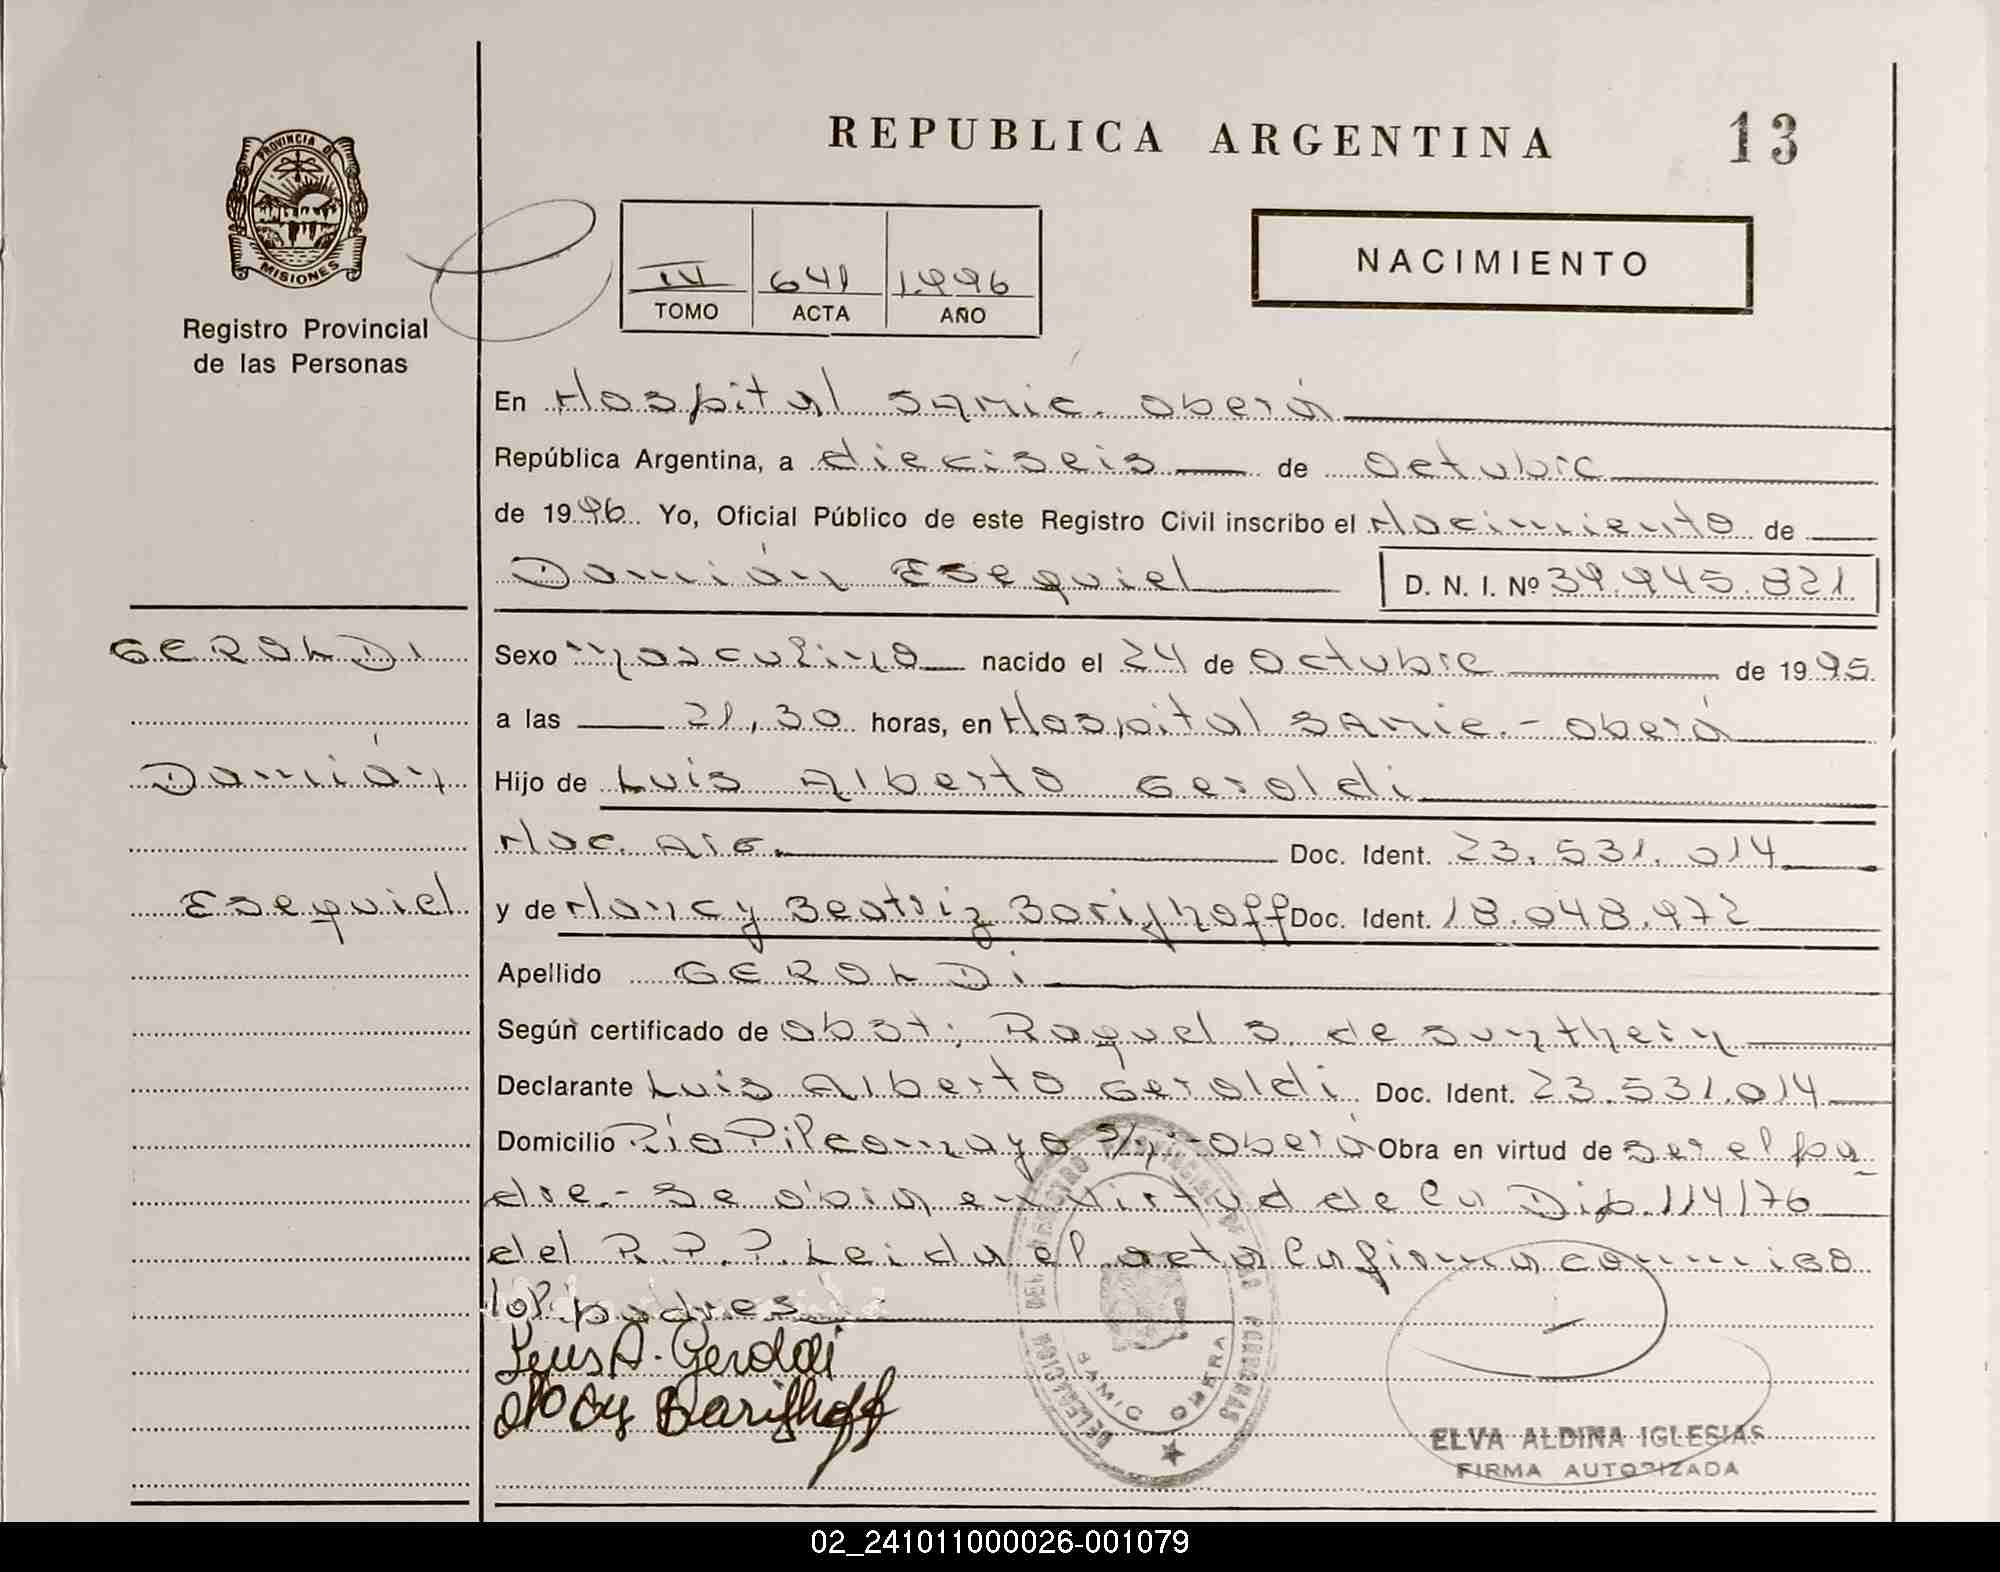 REPUBLICA ARGENTINA
13
PROVINCIA DE
MISIONES
Registro Provincial
de las Personas
IV 641 1.996
TOMO ACTA AÑO
NACIMIENTO
En Hospital SAMIC. Oberá
República Argentina, a dieciseis de Octubre
de 1996 Yo, Oficial Público de este Registro Civil inscribo el Nacimiento de
Damián Esequiel D. N. I. Nº 39.945.821
GEROLDI
Damián
Esequiel
Sexo Masculino nacido el 24 de Octubre de 1995
a las 21,30 horas, en Hospital SAMIC.- Oberá
Hijo de Luis Alberto Geroldi
Nac. Arg. Doc. Ident. 23.531.014
y de Nancy Beatriz Barijhoff Doc. Ident. 18.048.972
Apellido GEROLDI
Según certificado de obst; Raquel S. de Sunthein
Declarante Luis Alberto Geroldi Doc. Ident. 23.531.014
Domicilio Río Pilcomayo s/n-Oberá Obra en virtud de ser el pa
dre.- Se obra en virtud de la Dip. 114/76
del R.P.P. Leida el acta la firma conmigo
los padres
Luis A. Geroldi
Barijhoff
DELEGACION
SAMIC OBERA
ELVA ALDINA IGLESIAS
FIRMA AUTORIZADA
02_241011000026-001079